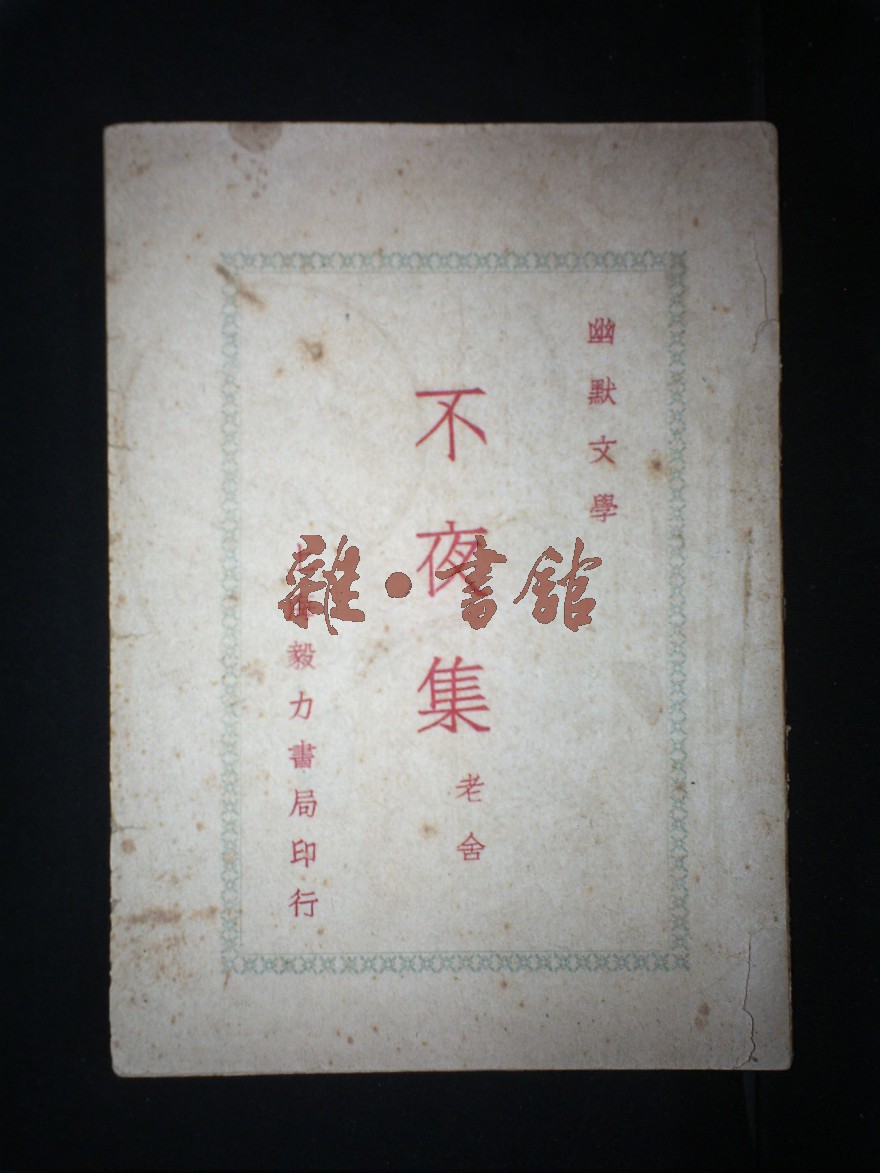 幽默文學
不夜集
老舍
毅力書局印行
雜·書館